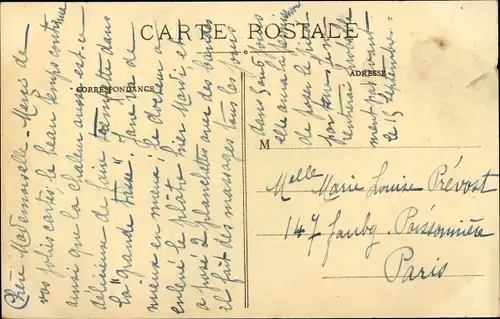 CARTE POSTALE
CORRESPONDANCE
ADRESSE
Chère Mademoiselle. Merci de
vos jolies cartes, le beau temps continue
ainsi que la chaleur aussi est-ce
délicieux de faire trempette dans
la "grande tasse". Jane va de
mieux en mieux; le docteur a
enlevé le plâtre hier Mardi et
a posé 2 planchettes avec des bandes
il fait des massages tous les jours
dans
elle aura
de
par
rentrons
ment
le 15 Septembre.
M
Melle Marie Louise Prévost
147 Faubg. Poissonnière
Paris